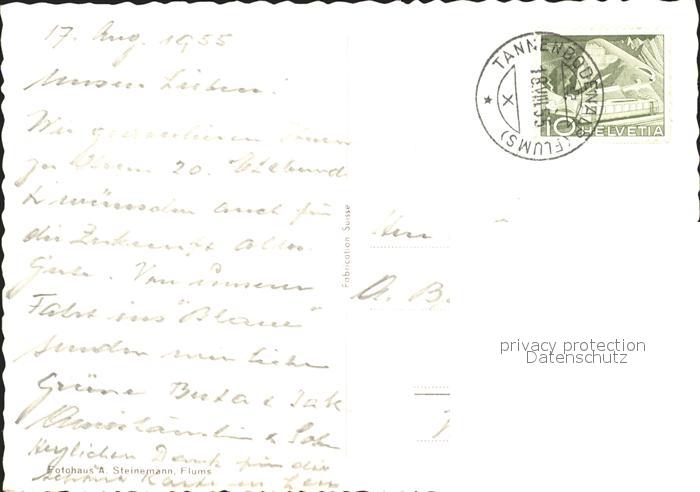 17. Aug. 1955
Unsere Lieben!
Wir gratulieren Ihnen
zu Ihrem 20.
& wünschen auch für
die Zukunft alles
Gute. Von unserer
Fahrt ins "Blaue"
senden wir liebe
Grüsse
&
Herzlichen Dank für die
schöne Karte
Fotohaus A. Steinemann, Flums
Fabrication Suisse
TANNENBODENALP (FLUMS)
18.VIII.55
X
10 HELVETIA
Herrn
A. B
privacy protection
Datenschutz